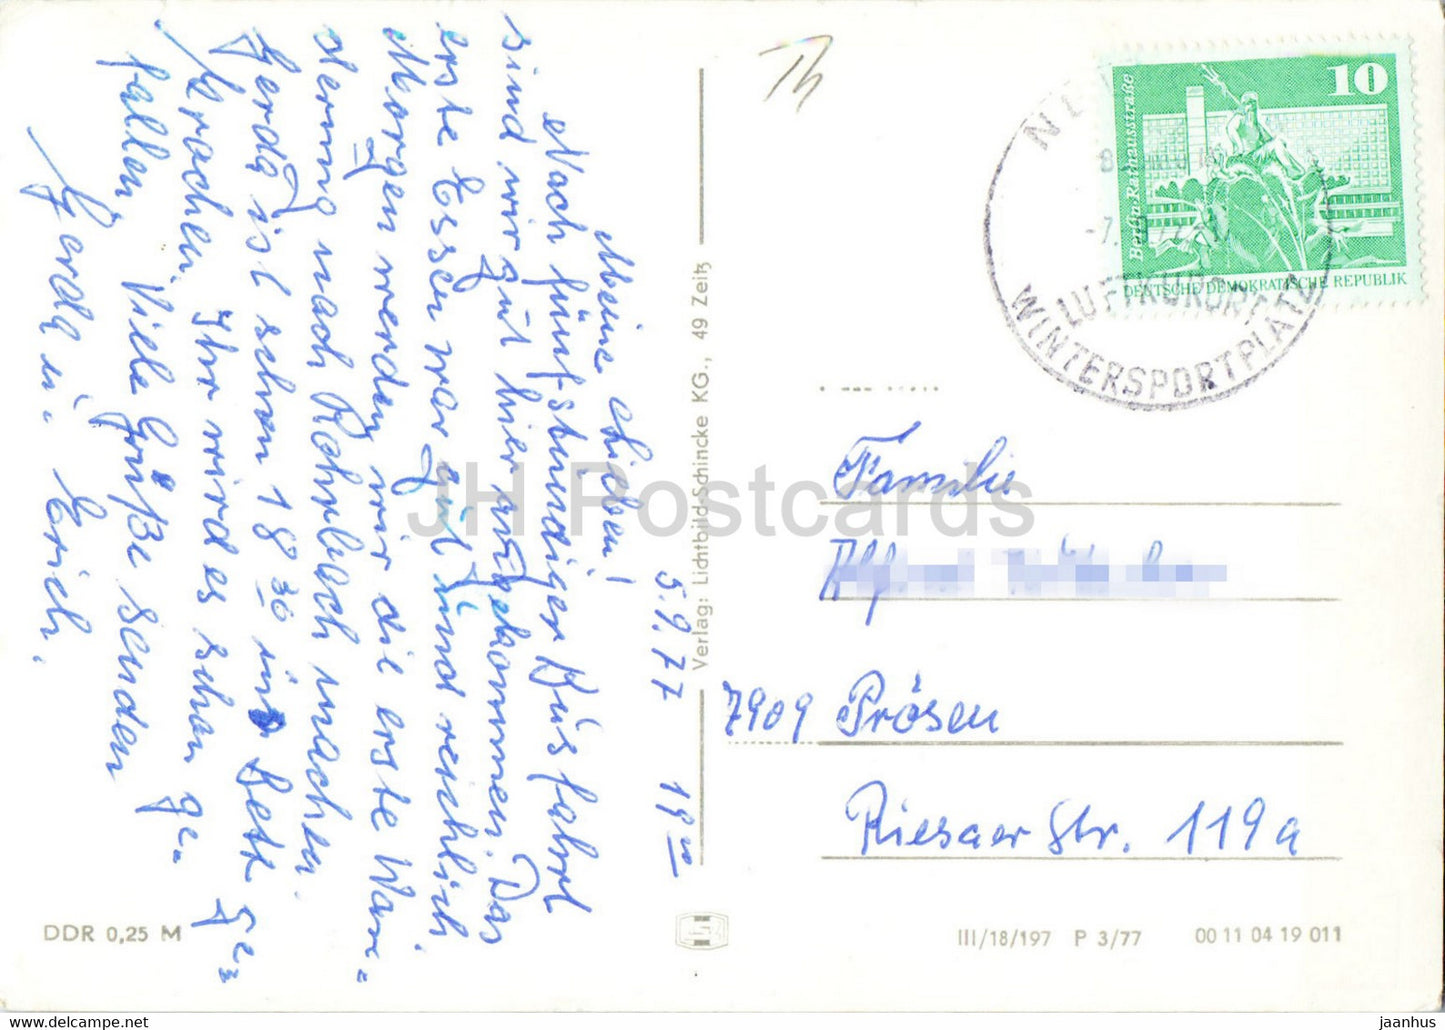 5.9.77 19 00
Meine Lieben!
Nach fünfstündiger Busfahrt
sind wir gut hier angekommen. Das
erste Essen war gut und reichlich.
Morgen werden wir die erste Wan-
derung nach Rohrbach machen.
Gerda ist schon 18 30 ins Bett ge-
krochen. Ihr wird es schon ge-
fallen. Viele Grüße senden
Gerda u. Erich.
Verlag: Lichtbild-Schincke KG., 49 Zeitz
DDR 0,25 M
Th
10
Berlin, Rathausstraße
DEUTSCHE DEMOKRATISCHE REPUBLIK
LUFTKURORT
WINTERSPORTPLATZ
Familie
7909 Prösen
Riesaer Str. 119a
III/18/197 P 3/77 00 11 04 19 011
JH Postcards
jaanhus